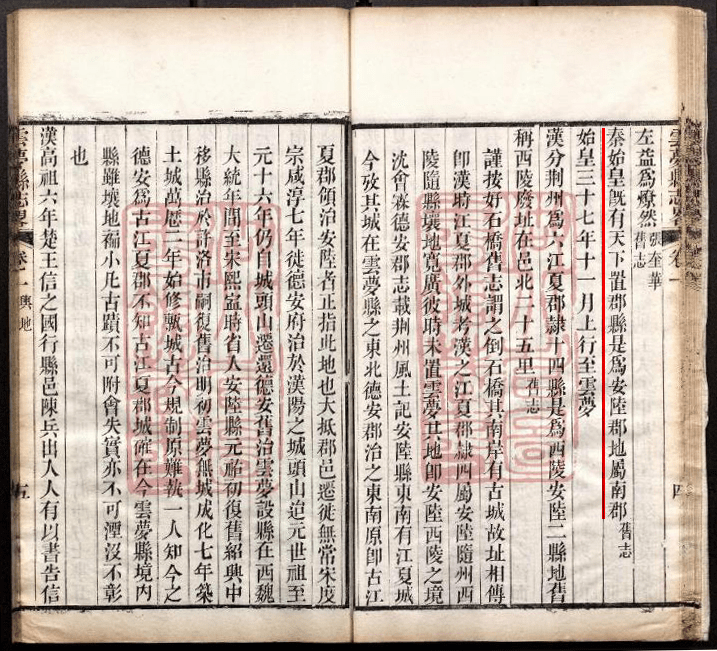 雲夢縣志畧 卷一 四
左益為燎然張奎華舊志
秦始皇既有天下置郡縣是為安陸郡地屬南郡舊志
始皇三十七年十一月上行至雲夢
漢分荆州為六江夏郡隸十四縣是為西陵安陸二縣地舊
稱西陵廢址在邑北二十五里舊志
謹按好石橋舊志謂之倒石橋其南岸有古城故址相傳
卽漢時江夏郡外城考漢之江夏郡隸四屬安陸隨州西
陵隨縣壤地寬廣彼時未置雲夢其地卽安陸西陵之境
沈會霖德安郡志載荆州風土記安陸縣東南有江夏城
今攷其城在雲夢縣之東北德安郡治之東南原卽古江
夏郡領治安陸者正指此地也大抵郡邑遷徙無常宋度
宗咸淳七年徙德安府治於漢陽之城頭山迨元世祖至
元十六年仍自城頭山遷還德安舊治雲夢設縣在西魏
大統年間至宋熙寍時省入安陸縣元祐初復舊紹興中
移縣治於許洛市嗣復舊治明初雲夢無城成化七年築
土城萬厯二年始修甎城古今規制原難執一人知今之
德安為古江夏郡不知古江夏郡城確在今雲夢縣境內
縣雖壤地褊小凡古蹟不可附會失實亦不可湮沒不彰
也
漢高祖六年楚王信之國行縣邑陳兵出入人有以書告信
雲夢縣志畧 卷一 輿地 五